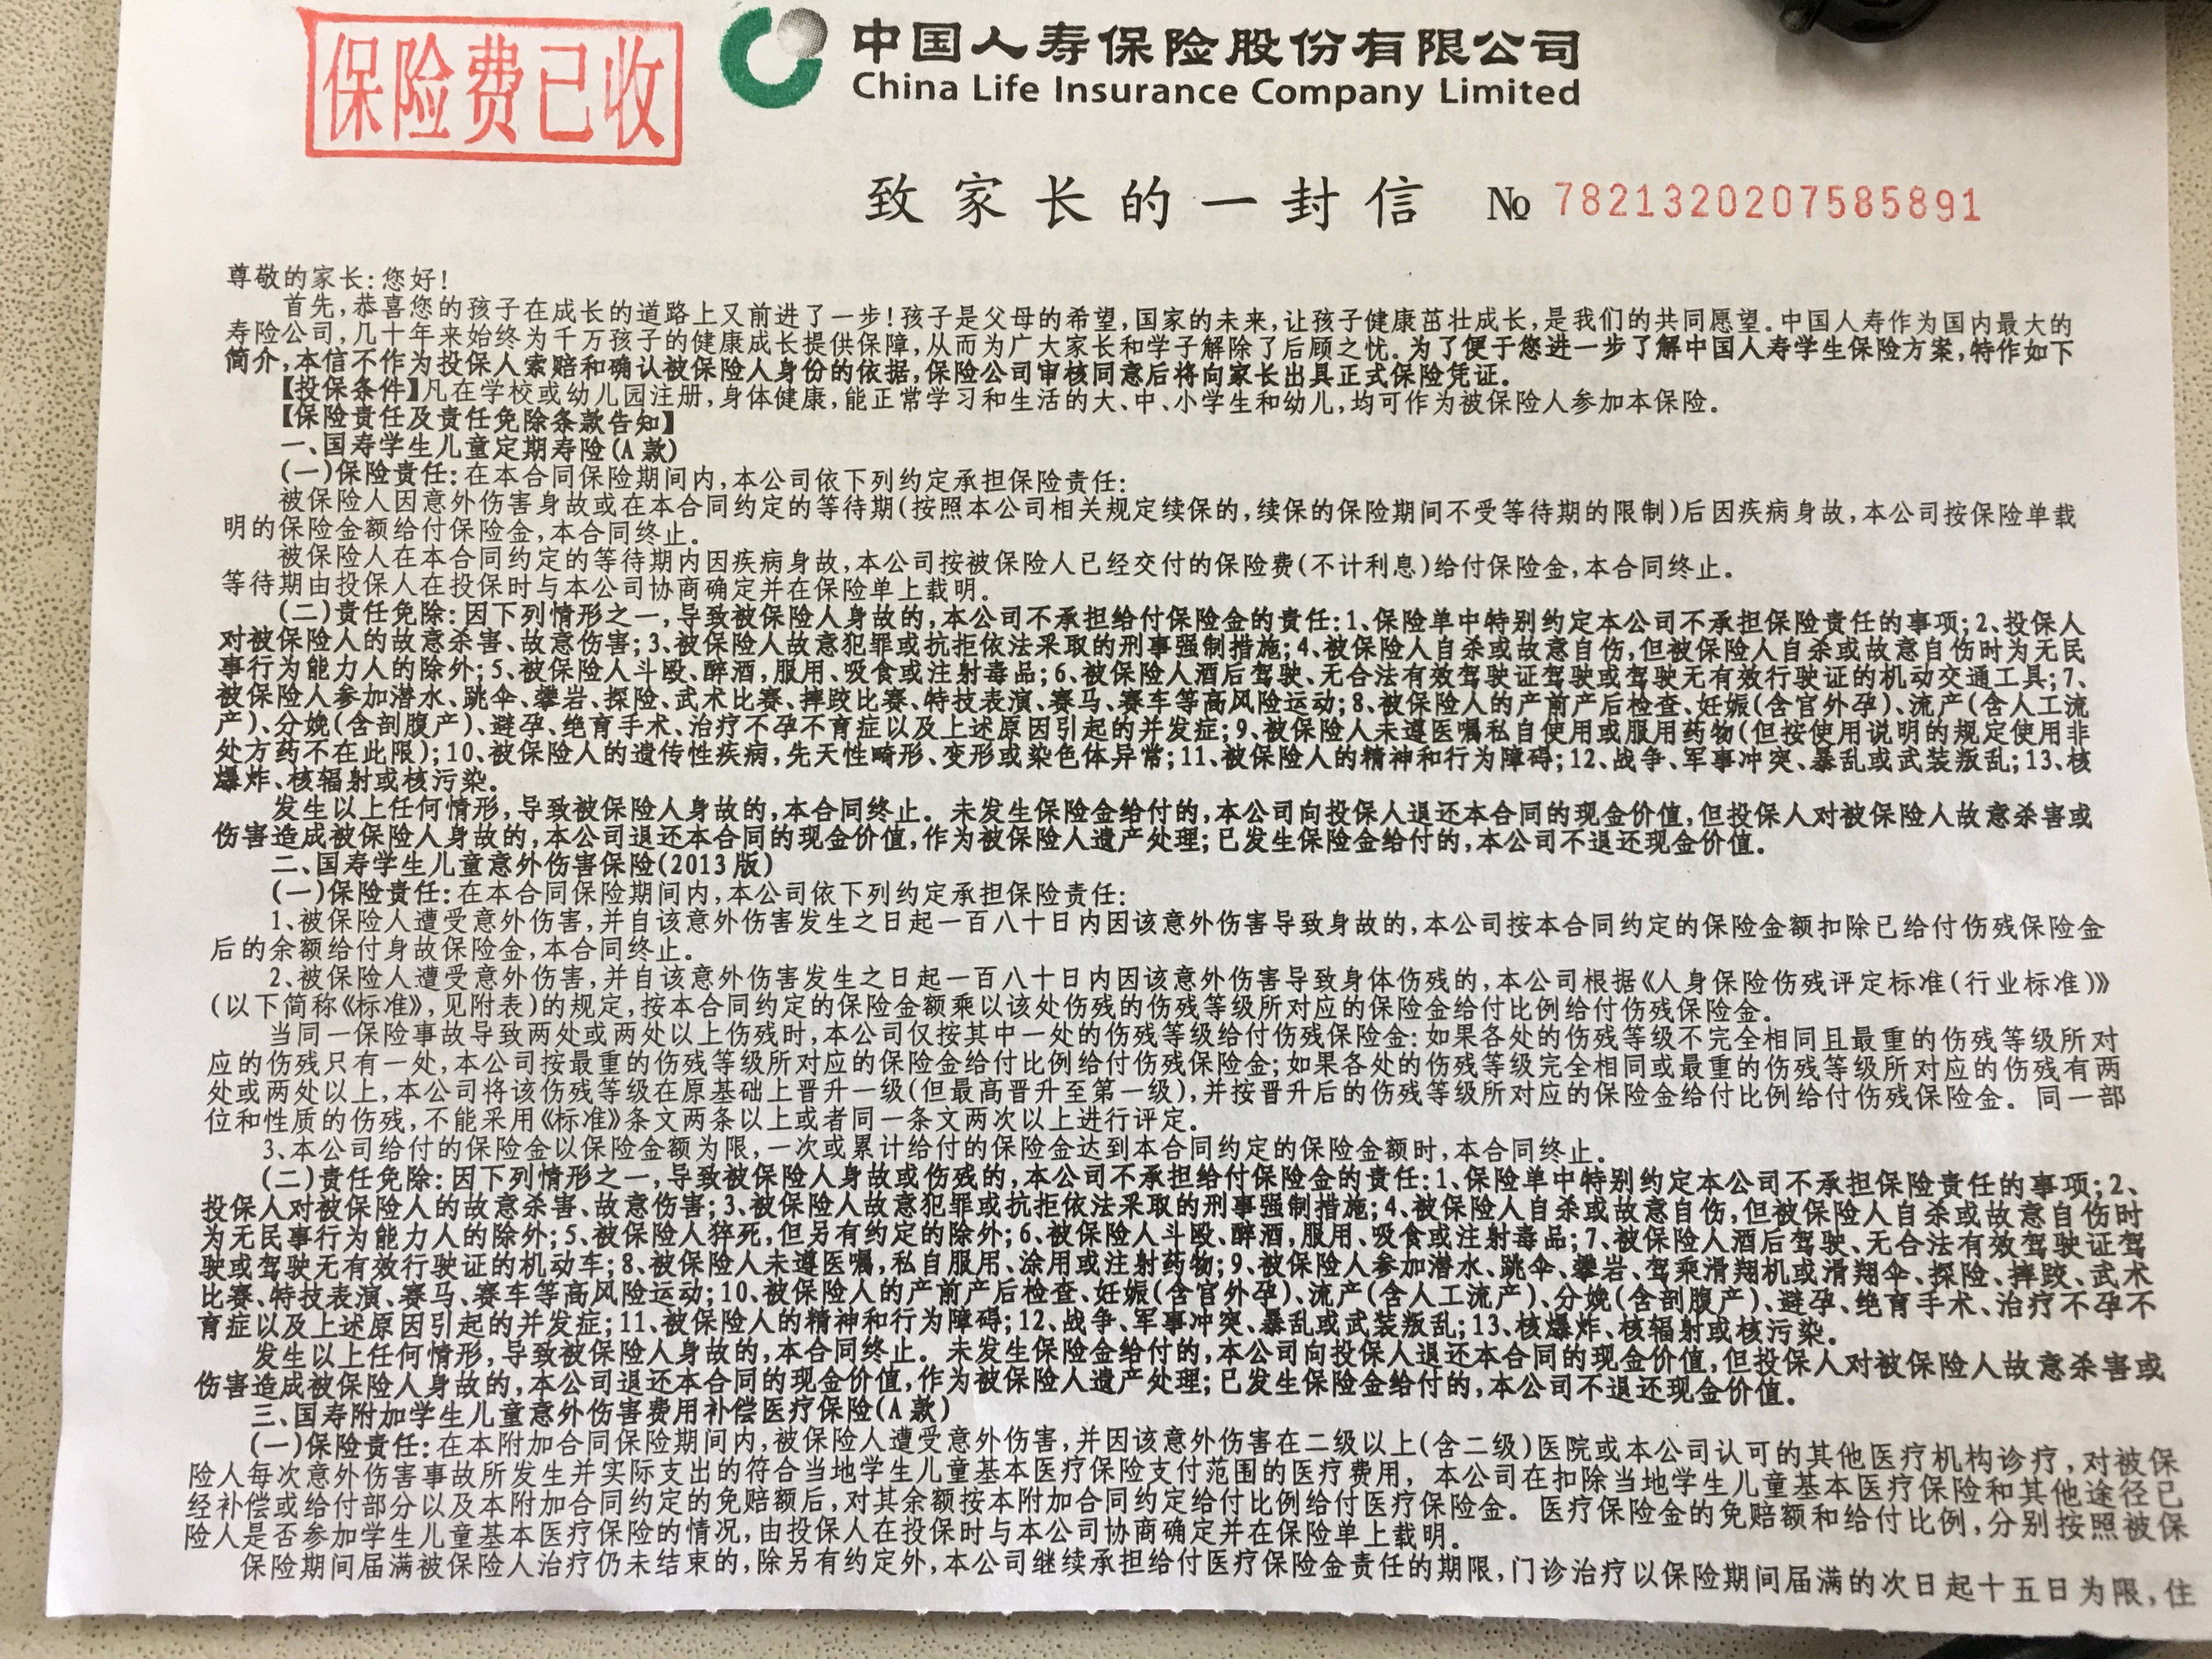 保险费已收
中国人寿保险股份有限公司
China Life Insurance Company Limited
致家长的一封信 № 7821320207585891
尊敬的家长:您好!
首先,恭喜您的孩子在成长的道路上又前进了一步!孩子是父母的希望,国家的未来,让孩子健康茁壮成长,是我们的共同愿望。中国人寿作为国内最大的
寿险公司,几十年来始终为千万孩子的健康成长提供保障,从而为广大家长和学子解除了后顾之忧。为了便于您进一步了解中国人寿学生保险方案,特作如下
简介,本信不作为投保人索赔和确认被保险人身份的依据,保险公司审核同意后将向家长出具正式保险凭证。
【投保条件】凡在学校或幼儿园注册,身体健康,能正常学习和生活的大、中、小学生和幼儿,均可作为被保险人参加本保险。
【保险责任及责任免除条款告知】
一、国寿学生儿童定期寿险(A款)
(一)保险责任:在本合同保险期间内,本公司依下列约定承担保险责任:
被保险人因意外伤害身故或在本合同约定的等待期(按照本公司相关规定续保的,续保的保险期间不受等待期的限制)后因疾病身故,本公司按保险单载
明的保险金额给付保险金,本合同终止。
被保险人在本合同约定的等待期内因疾病身故,本公司按被保险人已经交付的保险费(不计利息)给付保险金,本合同终止。
等待期由投保人在投保时与本公司协商确定并在保险单上载明。
(二)责任免除:因下列情形之一,导致被保险人身故的,本公司不承担给付保险金的责任:1、保险单中特别约定本公司不承担保险责任的事项;2、投保人
对被保险人的故意杀害、故意伤害;3、被保险人故意犯罪或抗拒依法采取的刑事强制措施;4、被保险人自杀或故意自伤,但被保险人自杀或故意自伤时为无民
事行为能力人的除外;5、被保险人斗殴、醉酒,服用、吸食或注射毒品;6、被保险人酒后驾驶、无合法有效驾驶证驾驶或驾驶无有效行驶证的机动交通工具;7、
被保险人参加潜水、跳伞、攀岩、探险、武术比赛、摔跤比赛、特技表演、赛马、赛车等高风险运动;8、被保险人的产前产后检查、妊娠(含宫外孕)、流产(含人工流
产)、分娩(含剖腹产)、避孕、绝育手术、治疗不孕不育症以及上述原因引起的并发症;9、被保险人未遵医嘱私自使用或服用药物(但按使用说明的规定使用非
处方药不在此限);10、被保险人的遗传性疾病,先天性畸形、变形或染色体异常;11、被保险人的精神和行为障碍;12、战争、军事冲突、暴乱或武装叛乱;13、核
爆炸、核辐射或核污染。
发生以上任何情形,导致被保险人身故的,本合同终止。未发生保险金给付的,本公司向投保人退还本合同的现金价值,但投保人对被保险人故意杀害或
伤害造成被保险人身故的,本公司退还本合同的现金价值,作为被保险人遗产处理;已发生保险金给付的,本公司不退还现金价值。
二、国寿学生儿童意外伤害保险(2013版)
(一)保险责任:在本合同保险期间内,本公司依下列约定承担保险责任:
1、被保险人遭受意外伤害,并自该意外伤害发生之日起一百八十日内因该意外伤害导致身故的,本公司按本合同约定的保险金额扣除已给付伤残保险金
后的余额给付身故保险金,本合同终止。
2、被保险人遭受意外伤害,并自该意外伤害发生之日起一百八十日内因该意外伤害导致身体伤残的,本公司根据《人身保险伤残评定标准(行业标准)》
(以下简称《标准》,见附表)的规定,按本合同约定的保险金额乘以该处伤残的伤残等级所对应的保险金给付比例给付伤残保险金。
当同一保险事故导致两处或两处以上伤残时,本公司仅按其中一处的伤残等级给付伤残保险金:如果各处的伤残等级不完全相同且最重的伤残等级所对
应的伤残只有一处,本公司按最重的伤残等级所对应的保险金给付比例给付伤残保险金;如果各处的伤残等级完全相同或最重的伤残等级所对应的伤残有两
处或两处以上,本公司将该伤残等级在原基础上晋升一级(但最高晋升至第一级),并按晋升后的伤残等级所对应的保险金给付比例给付伤残保险金。同一部
位和性质的伤残,不能采用《标准》条文两条以上或者同一条文两次以上进行评定。
3、本公司给付的保险金以保险金额为限,一次或累计给付的保险金达到本合同约定的保险金额时,本合同终止。
(二)责任免除:因下列情形之一,导致被保险人身故或伤残的,本公司不承担给付保险金的责任:1、保险单中特别约定本公司不承担保险责任的事项;2、
投保人对被保险人的故意杀害、故意伤害;3、被保险人故意犯罪或抗拒依法采取的刑事强制措施;4、被保险人自杀或故意自伤,但被保险人自杀或故意自伤时
为无民事行为能力人的除外;5、被保险人猝死,但另有约定的除外;6、被保险人斗殴、醉酒,服用、吸食或注射毒品;7、被保险人酒后驾驶、无合法有效驾驶证驾
驶或驾驶无有效行驶证的机动车;8、被保险人未遵医嘱,私自服用、涂用或注射药物;9、被保险人参加潜水、跳伞、攀岩、驾乘滑翔机或滑翔伞、探险、摔跤、武术
比赛、特技表演、赛马、赛车等高风险运动;10、被保险人的产前产后检查、妊娠(含宫外孕)、流产(含人工流产)、分娩(含剖腹产)、避孕、绝育手术、治疗不孕不
育症以及上述原因引起的并发症;11、被保险人的精神和行为障碍;12、战争、军事冲突、暴乱或武装叛乱;13、核爆炸、核辐射或核污染。
发生以上任何情形,导致被保险人身故的,本合同终止。未发生保险金给付的,本公司向投保人退还本合同的现金价值,但投保人对被保险人故意杀害或
伤害造成被保险人身故的,本公司退还本合同的现金价值,作为被保险人遗产处理;已发生保险金给付的,本公司不退还现金价值。
三、国寿附加学生儿童意外伤害费用补偿医疗保险(A款)
(一)保险责任:在本附加合同保险期间内,被保险人遭受意外伤害,并因该意外伤害在二级以上(含二级)医院或本公司认可的其他医疗机构诊疗,对被保
险人每次意外伤害事故所发生并实际支出的符合当地学生儿童基本医疗保险支付范围的医疗费用,本公司在扣除当地学生儿童基本医疗保险和其他途径已
经补偿或给付部分以及本附加合同约定的免赔额后,对其余额按本附加合同约定给付比例给付医疗保险金。医疗保险金的免赔额和给付比例,分别按照被保
险人是否参加学生儿童基本医疗保险的情况,由投保人在投保时与本公司协商确定并在保险单上载明。
保险期间届满被保险人治疗仍未结束的,除另有约定外,本公司继续承担给付医疗保险金责任的期限,门诊治疗以保险期间届满的次日起十五日为限,住